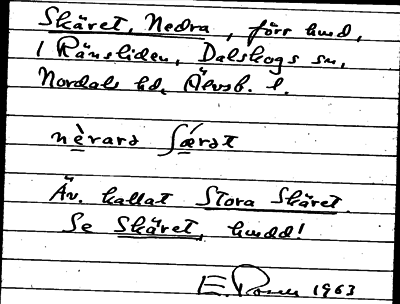 Skäret, Nedra, förr hmd,
i Ränsliden, Dalskogs sn,
Nordals hd, Älvsb. l.
nèrara ſǽrat
Äv. kallat Stora Skäret.
Se Skäret, hmdd!
1963